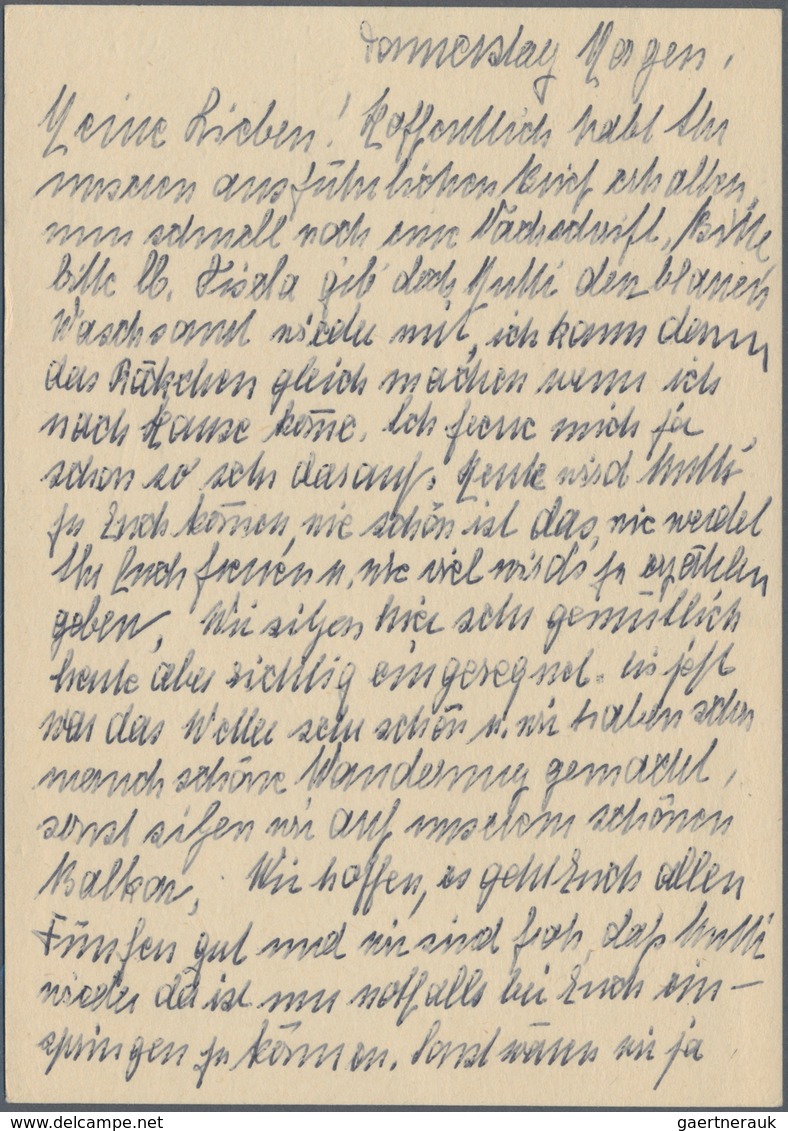 Donnerstag Morgen,
Meine Lieben! Hoffentlich habt Ihr
unseren ausführlichen Brief erhalten,
nun schnell noch eine Nachschrift. Bitte
bitte lb. Gisela gib' doch Mutti den blauen
wieder mit, ich kann dann
das Röckchen gleich machen wenn ich
nach Hause komme. Ich freue mich ja
schon so sehr darauf. Heute wird Mutti
zu Euch kommen, wie schön ist das, wie werdet
Ihr Euch freuen u. wie viel wird's zu erzählen
geben. Wir sitzen hier sehr gemütlich
heute aber richtig eingeregnet. Bis jetzt
war das Wetter sehr schön u. wir haben schon
manch schöne Wanderung gemacht,
sonst sitzen wir auf unserem schönen
Balkon. Wir hoffen, es geht Euch allen
Fünfen gut und wir sind froh, daß Mutti
wieder da ist um notfalls bei Euch ein-
springen zu können. Sonst wären wir ja
gaertnerauk